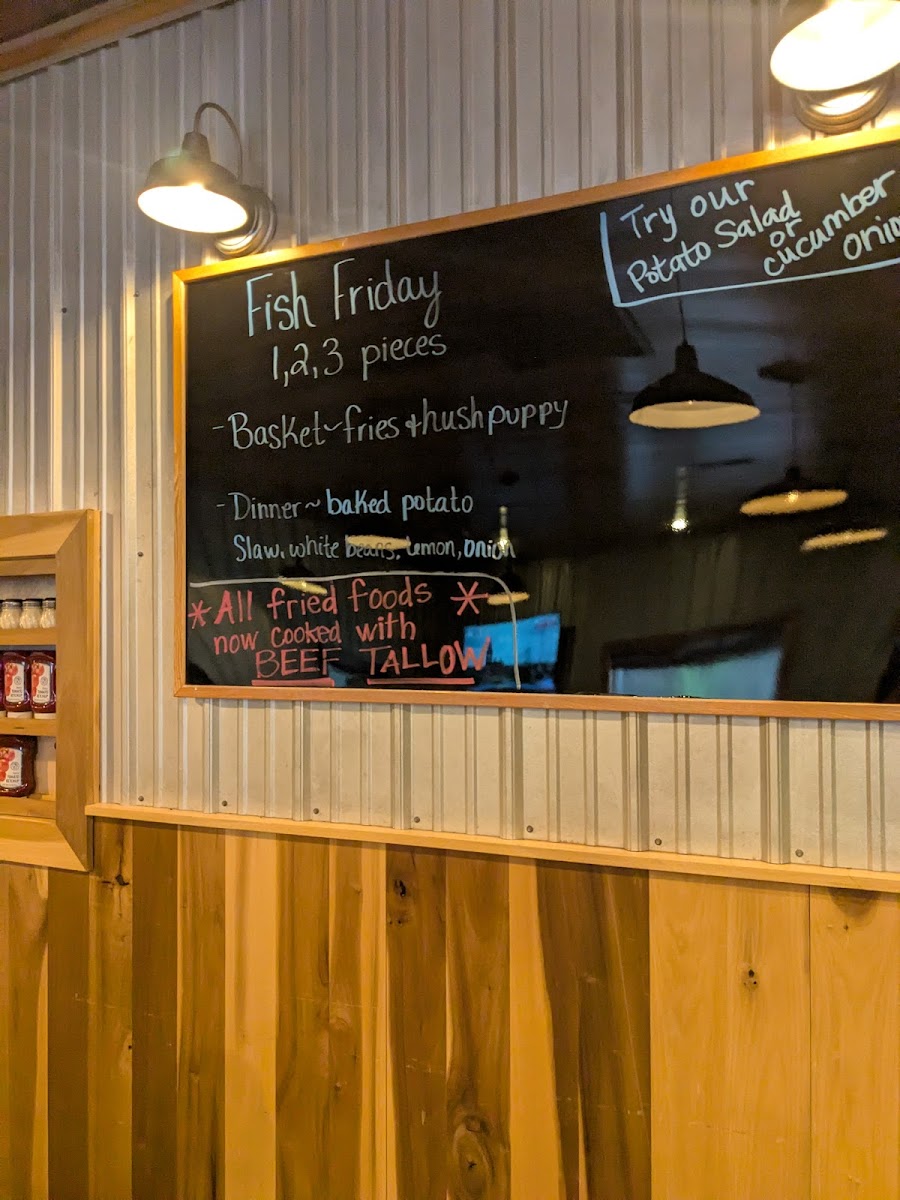 Fish Friday
1,2,3 pieces
-Basket~fries & hushpuppy
-Dinner~ baked potato
Slaw, white beans, lemon, onion
*All fried foods *
now cooked with
BEEF TALLOW
Try our
Potato Salad
or
cucumber